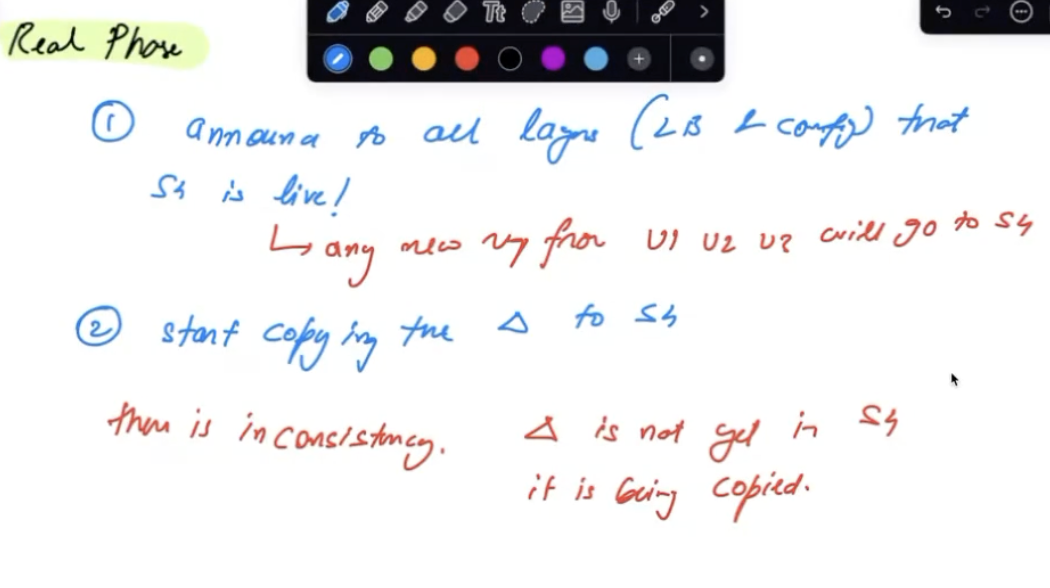 Real Phase
① announce to all layers (LB & config) that
S4 is live!
↳ any new req from U1 U2 U3 will go to S4
② start copying the Δ to S4
there is inconsistency. Δ is not yet in S4
it is being copied.
Tt